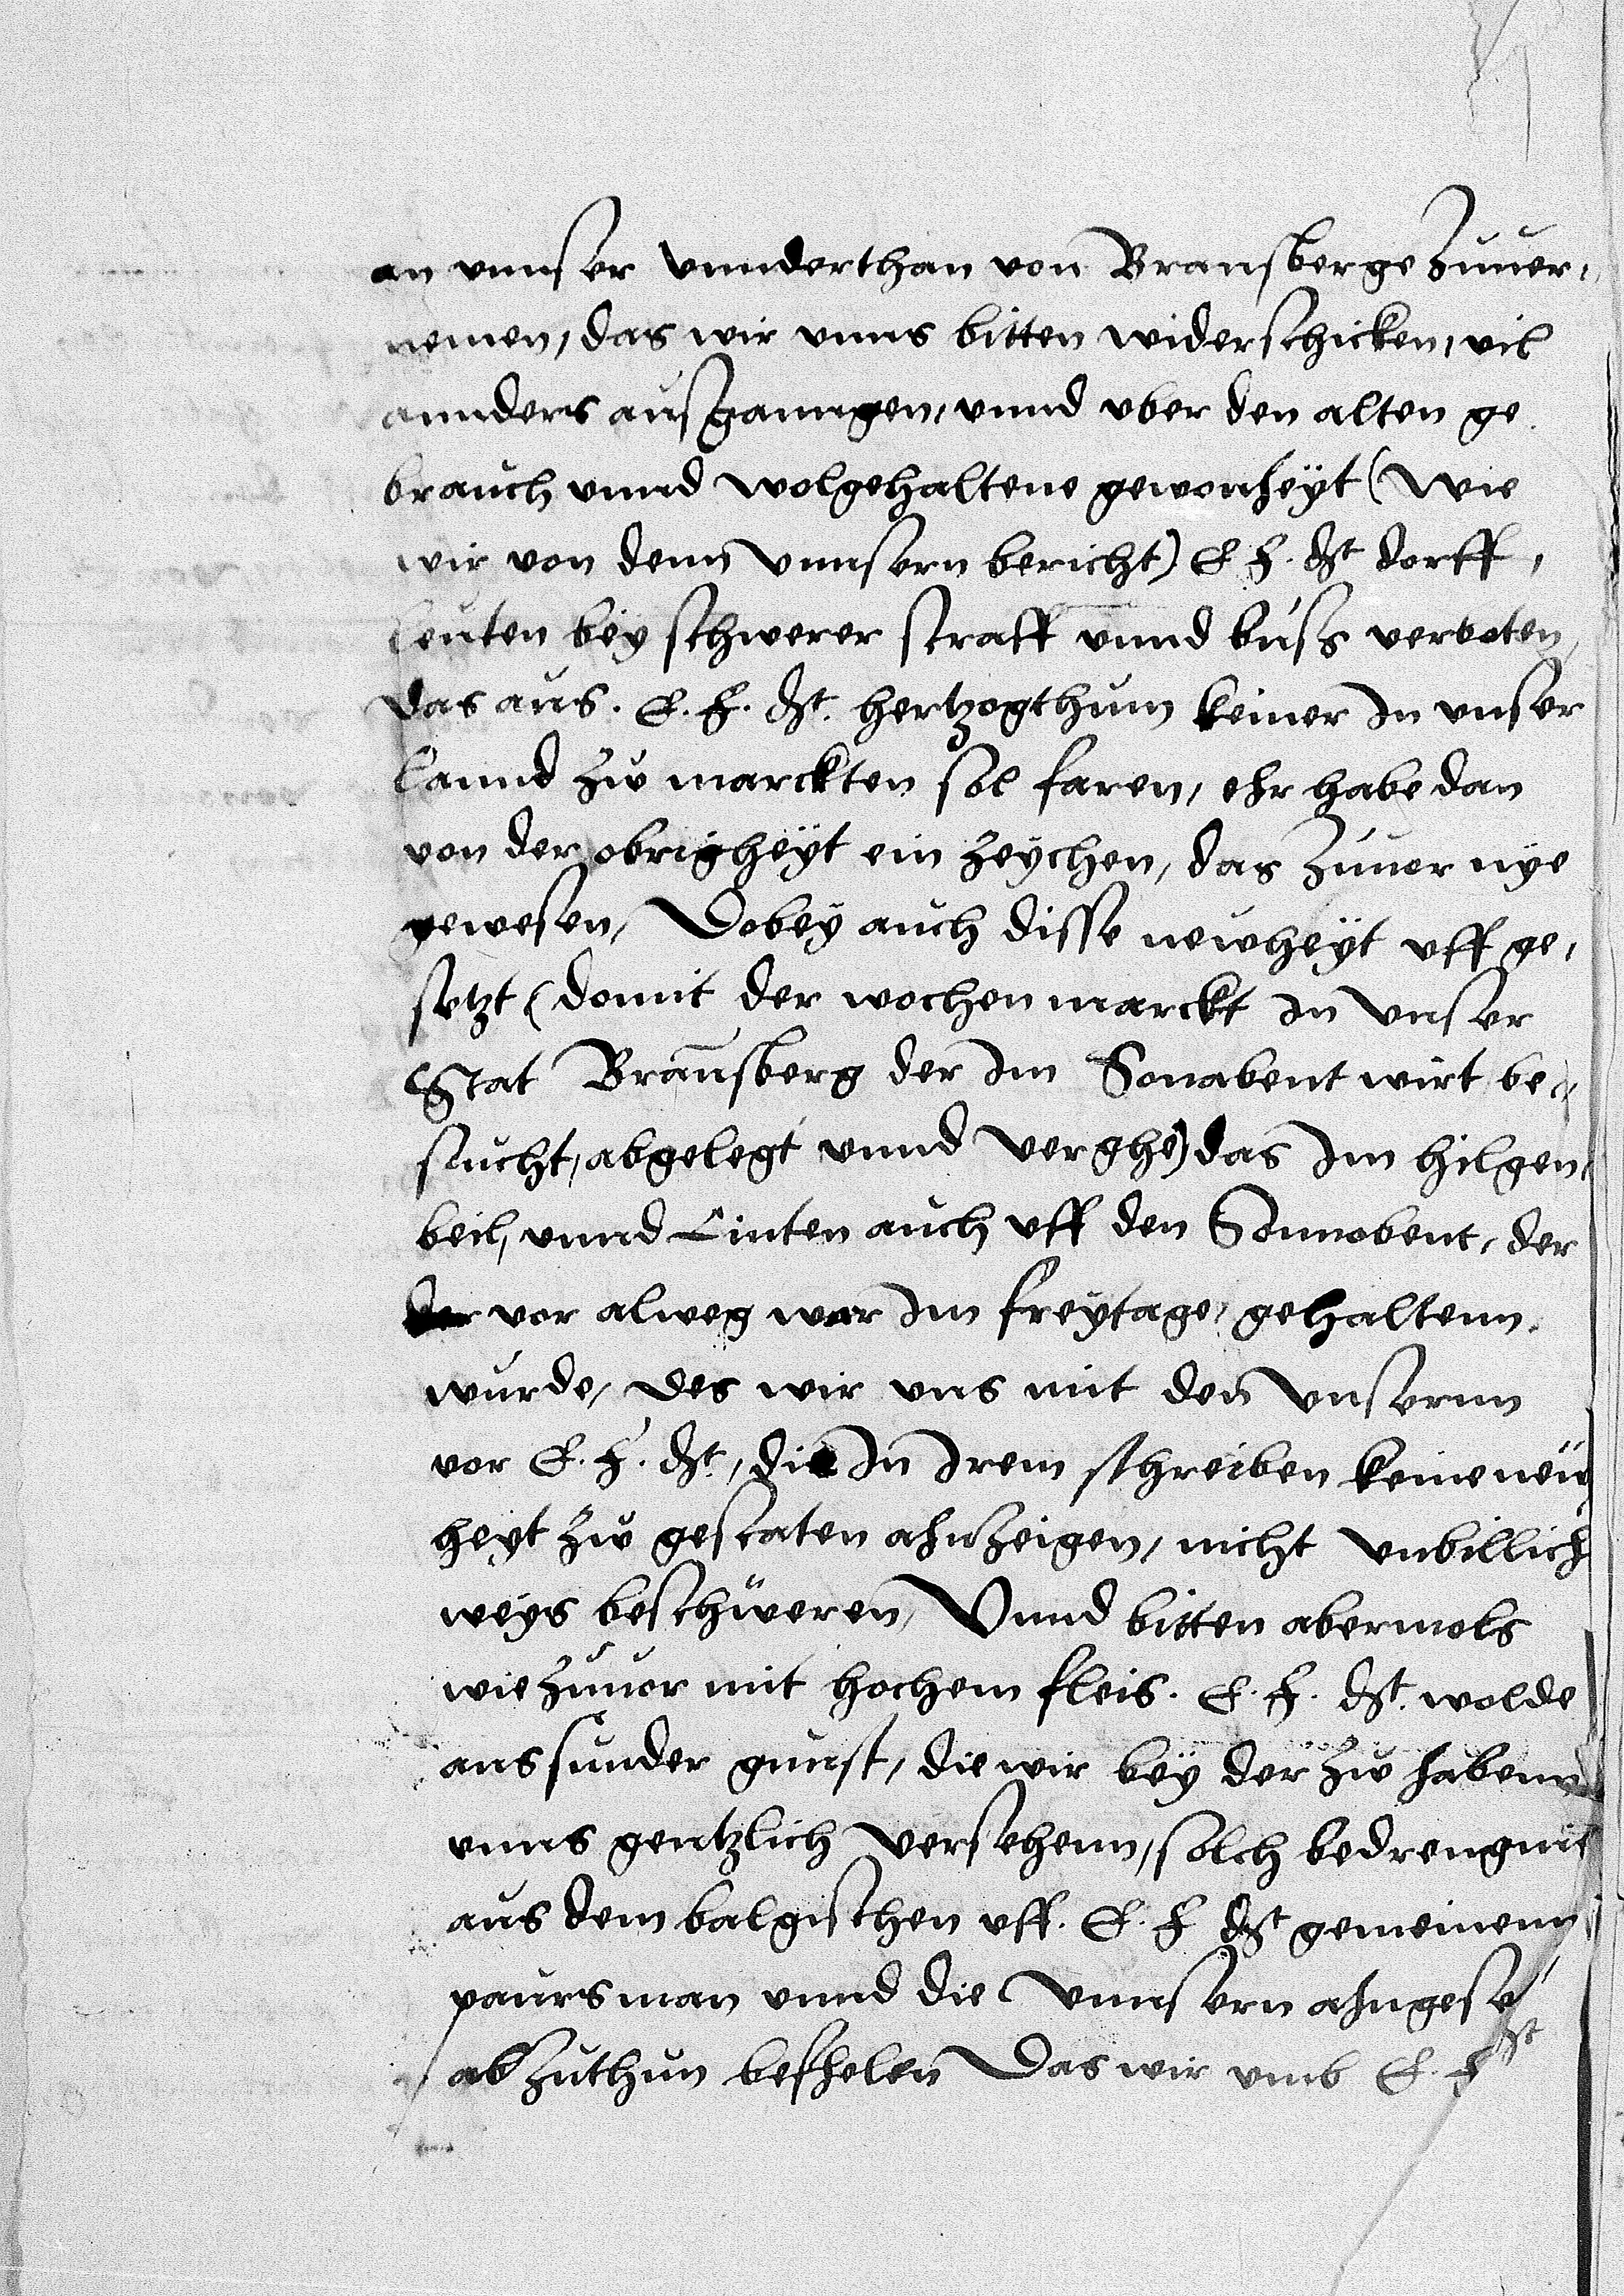 an vnnser vnnderthan von Braunsberge zuuer,
nemen, das wir vnns bitten widerschicken, vil
annders außganngen, vnnd vber den alten ge
brauch vnnd wolgehaltene gewonheyt (wie
wir von denn vnnsern bericht) E F. dt dorff,
leuten bey schwerer straff vnnd buss verboten,
das aus. E. F. dt. hertzogthum keiner In vnser
lannd zw marckten sol faren, ehr habe dan
von der obrigheyt ein zeychen, das zuuor nye
gewesen, Dobey auch disse newheyt vff ge,
setzt (domit der wochen marckt In vnser
Stat Braunsberg der Im Sonabent wirt be,
sucht, abgelegt vnnd verghe) das Im hilgen,
beil, vnnd Cinten auch vff den Sonnobent, der
vor alweg war Im freytage, gehaltenn
wurde, des wir vns mit den vnsernn
vor E. F. dt., die In Irem schreiben keine new
heyt zw gestaten ahnzeigen, nicht vnbillich
weys beschweren, Vnnd bitten abermols
wie zuuor mit hochem fleis. E. F. dt. wolde
aus sunder gunst, die wir bey der zw habenn
vnns gentzlich versehenn, solch bedrengnis
aus dem balgischen vff. E. F dt gemeinenn
paursman vnnd die vnnsern ahngese
abzuthun befhelen Das wir vmb E. F dt